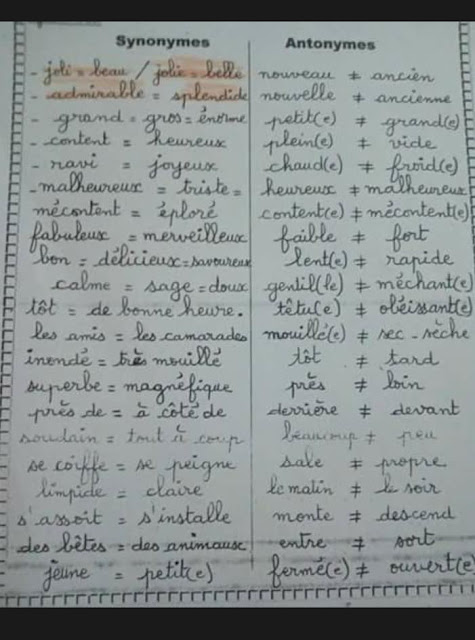 Synonymes
- joli = beau / jolie = belle
- admirable = splendide
- grand = gros = énorme
- content = heureux
- ravi = joyeux
- malheureux = triste =
mécontent = éploré
fabuleux = merveilleux
bon = délicieux = savoureux
calme = sage = doux
tôt = de bonne heure.
les amis = les camarades
inondé = très mouillé
superbe = magnéfique
près de = à côté de
soudain = tout à coup
se coiffe = se peigne
limpide = claire
s'assoit = s'installe
des bêtes = des animaux
jeune = petit(e)
Antonymes
nouveau ≠ ancien
nouvelle ≠ ancienne
petit(e) ≠ grand(e)
plein(e) ≠ vide
chaud(e) ≠ froid(e)
heureux ≠ malheureux
content(e) ≠ mécontent(e)
faible ≠ fort
lent(e) ≠ rapide
gentil(le) ≠ méchant(e)
têtu(e) ≠ obéissant(e)
mouillé(e) ≠ sec - sèche
tôt ≠ tard
près ≠ loin
derrière ≠ devant
beaucoup ≠ peu
sale ≠ propre
le matin ≠ le soir
monte ≠ descend
entre ≠ sort
fermé(e) ≠ ouvert(e)